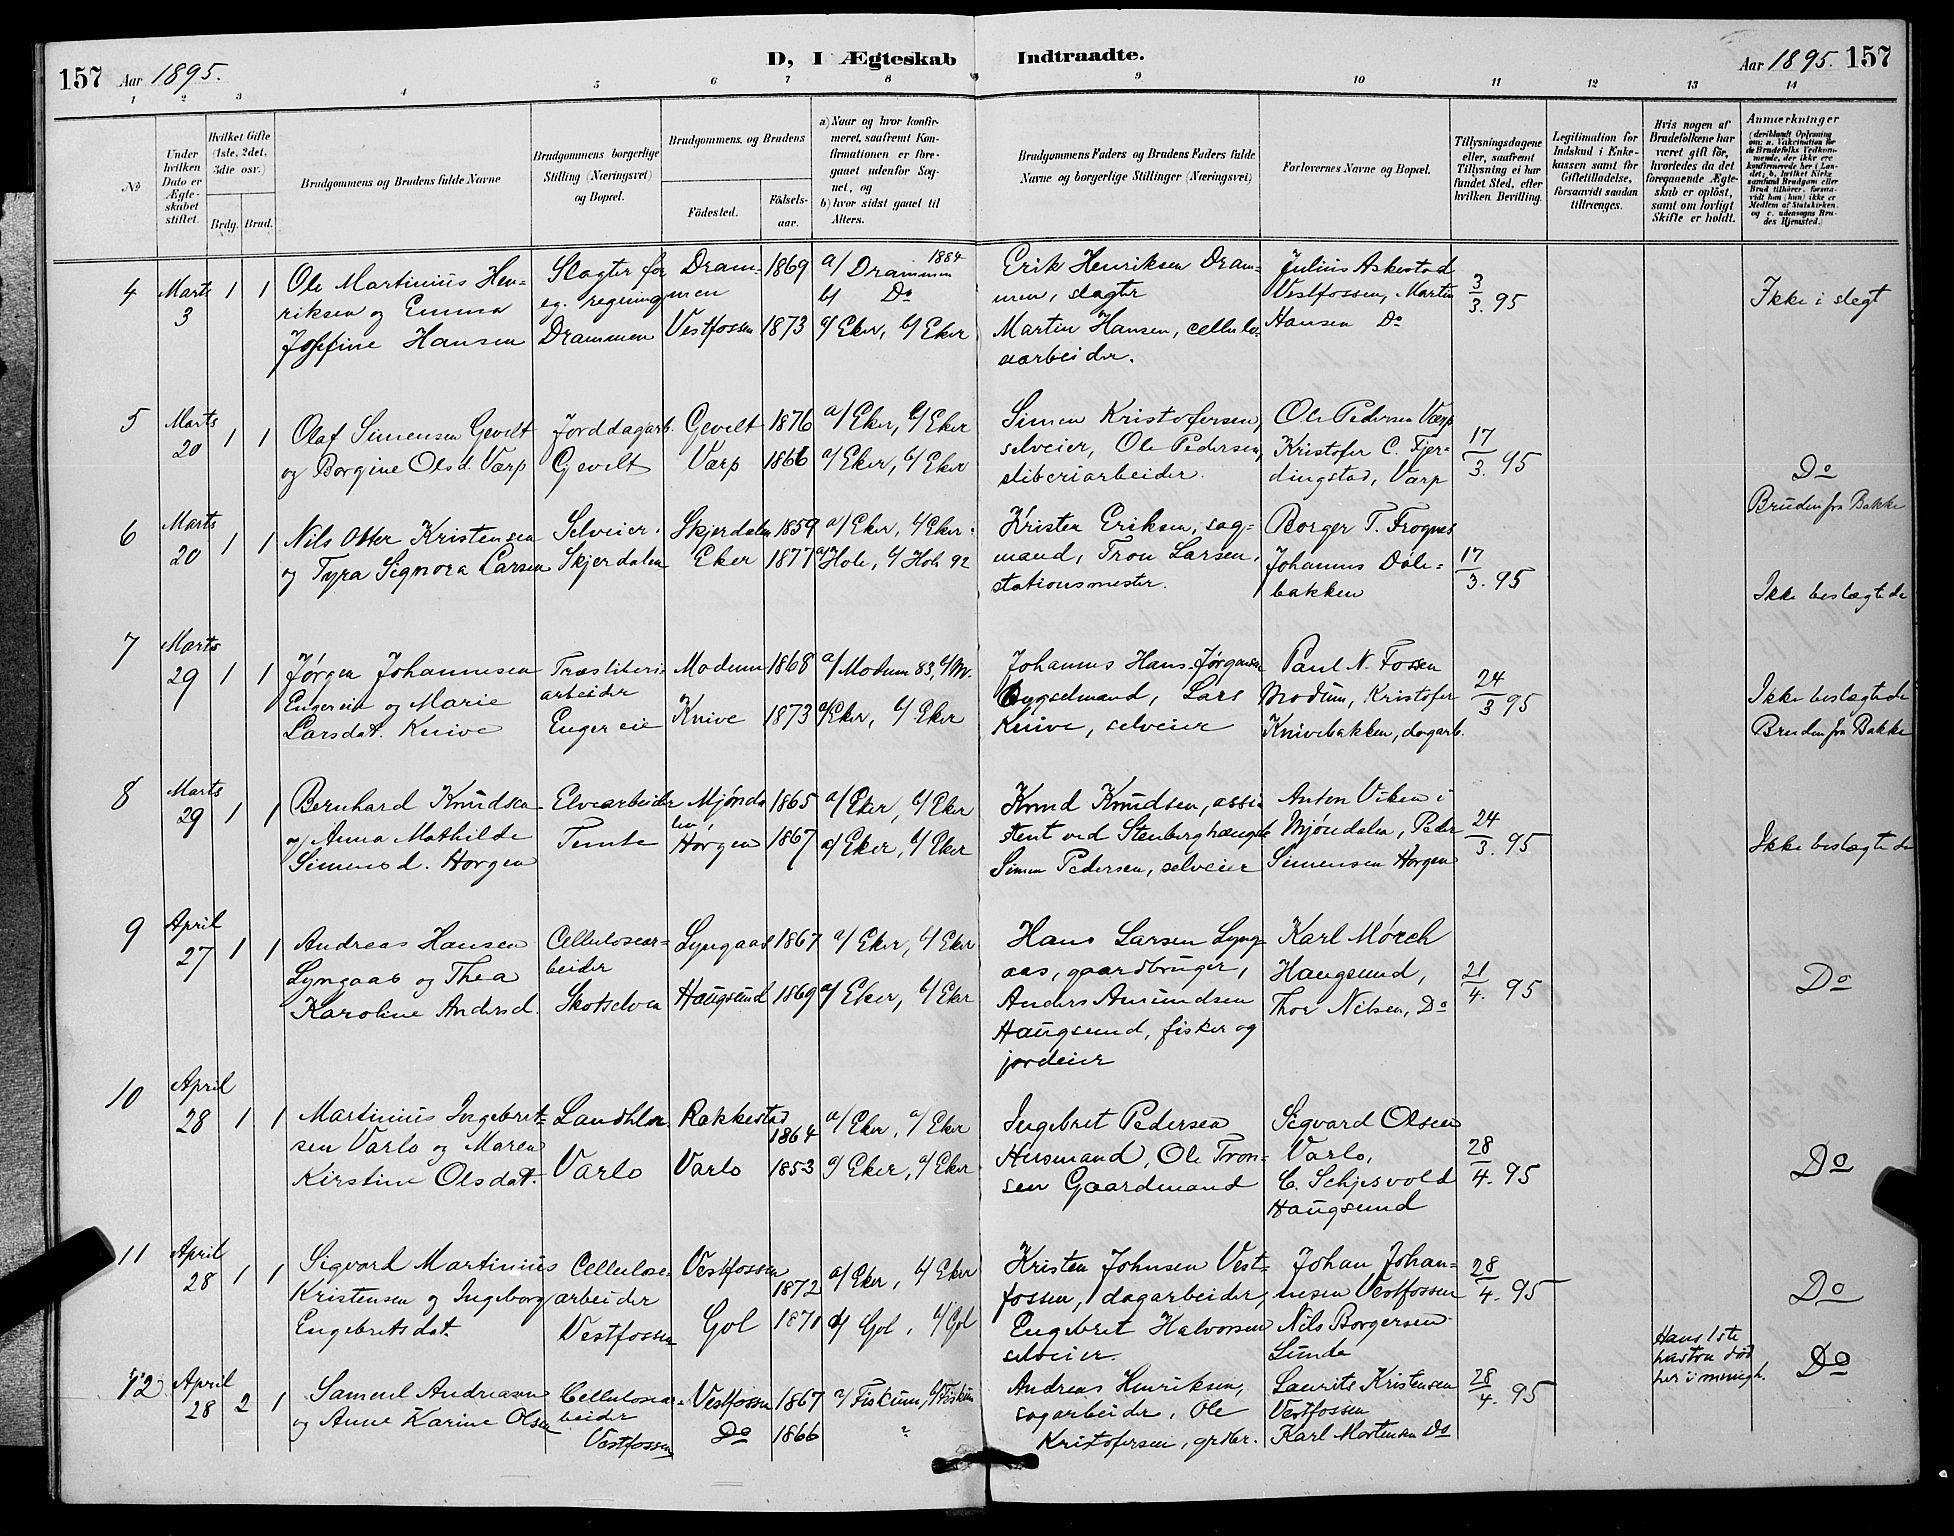 157 Aar 1895. D, I Ægteskab Indtraadte. Aar 1895. 157
1 2 3 4 5 6 7 8 9 10 11 12 13 14
No
Under hvilken Dato er Ægteskabet stiftet.
Hvilket Gifte (1ste, 2det, 3die osv.)
Brdg. Brud.
Brudgommens og Brudens fulde Navne
Brudgommens borgerlige Stilling (Næringsvei) og Bopæl.
Brudgommens, og Brudens
Fødested. Fødselsaar.
a) Naar og hvor konfirmeret, saafremt Konfirmationen er foregaaet udenfor Sognet, og
b) hvor sidst gaaet til Alters.
Brudgommens Faders og Brudens Faders fulde Navne og borgerlige Stillinger (Næringsvei)
Forlovernes Navne og Bopæl.
Tillysningsdagene eller, saafremt Tillysning ei har fundet Sted, efter hvilken Bevilling.
Legitimation for Indskud i Enkekassen samt for Giftetilladelse, forsaavidt saadan tiltrænges.
Hvis nogen af Brudefolkene har været gift før, hvorledes da det foregaaende Ægteskab er opløst, samt om lovligt Skifte er holdt.
Anmærkninger
4 Marts 3 1 1
Ole Martinius Henriksen og Emma Josefine Hansen
Slagter for eg. regning Drammen
Drammen 1869 a/ Drammen 1884 b/ Do
Vestfossen 1873 a/ Eker, b/ Eker
Erik Henriksen Drammen, slagter
Martin Hansen, celluloaarbeider.
Julius Askestad Vestfossen, Martin Hansen Do
3/3. 95
Ikke i slegt
5 Marts 20 1 1
Olaf Simensen Gevelt og Borgine Olsd. Varp
Jorddagarb. Gevelt
Gevelt 1876 a/ Eker, b/ Eker
Varp 1866 a/ Eker, b/ Eker
Simen Kristofersen, selveier, Ole Pedersen, sliberiarbeider.
Ole Pedersen Varp
Kristofer C. Fjerdingstad, Varp
17/3. 95
Do
Bruden fra Bakke
6 Marts 20 1 1
Nils Otter Kristensen og Tyra Signora Larsen
Selveier. Skjerdalen
Skjerdalen 1859 a/ Eker, b/ Eker.
Eker 1877 a/ Hole, b/ Hole 92
Kristen Eriksen, sagmand, Tron Larsen, stationsmester.
Borger T. Frognes
Johannes Dølebakken
17/3. 95
Ikke beslægtede
7 Marts 29 1 1
Jørgen Johannesen Engereie og Marie Larsdat. Knive
Træsliberiarbeider Engereie
Modum 1868 a/ Modum 83, b/ M.
Knive 1873 a/ Eker, b/ Eker
Johannes Hans-Jørgensen Bygselmand, Lars Knive, selveier
Paul N. Fossen Modum, Kristofer Knivebakken, dagarb.
24/3 95
Ikke beslægtede
Bruden fra Bakke
8 Marts 29 1 1
Bernhard Knudsen og Anna Mathilde Simensd. Horgen
Elvearbeider Temte
Mjøndalen, 1865 a/ Eker, b/ Eker
Horgen 1867 a/ Eker, b/ Eker
Knud Knudsen, assistent ved Stenberghængsle
Simen Pedersen, selveier
Anton Viken i Mjøndalen, Peder Simensen Horgen
24/3. 95
Ikke beslægtede
9 April 27 1 1
Andreas Hansen Lyngaas og Thea Karoline Andersd.
Cellulosearbeider Skotselven
Lyngaas 1867 a/ Eker, b/ Eker
Haugsund 1869 a/ Eker, b/ Eker
Hans Larsen Lyngaas, gaardbruger,
Anders Amundsen Haugsund, fisker og jordeier
Karl Mørch Haugsund,
Thor Nilsen, Do
21/4. 95
Do
10 April 28 1 1
Martinius Ingebretsen Varlo og Maren Kirstine Olsdat.
Landhlr. Varlo
Rakkestad 1864 a/ Eker, b/ Eker
Varlo 1853 a/ Eker, b/ Eker
Ingebret Pedersen Husmand, Ole Tronsen Gaardmand
Sigvard Olsen Varlo,
C. Schjesvold Haugsund
28/4. 95
Do
11 April 28 1 1
Sigvard Martinius Kristensen og Ingeborg Engebretsdat.
Cellulosearbeider Vestfossen
Vestfossen 1872 a/ Eker, b/ Eker
Gol 1871 a/ Gol, b/ Gol
Kristen Johnsen Vestfossen, dagarbeider,
Engebret Halvorsen selveier.
Johan Johannesen Vestfossen
Nils Borgersen Lunde
28/4. 95
Do
12 April 28 2 1
Samuel Andreasen og Anne Karine Olsen
Cellulosearbeider Vestfossen
Vestfossen 1867 a/ Fiskum, b/ Fiskum
Do 1866 "
Andreas Henriksen, sagarbeider, Ole Kristofersen, grdbr.
Laurits Kristensen Vestfossen
Karl Mortensen Do
28/4. 95
Hans 1ste hustru død her i menigh.
Do